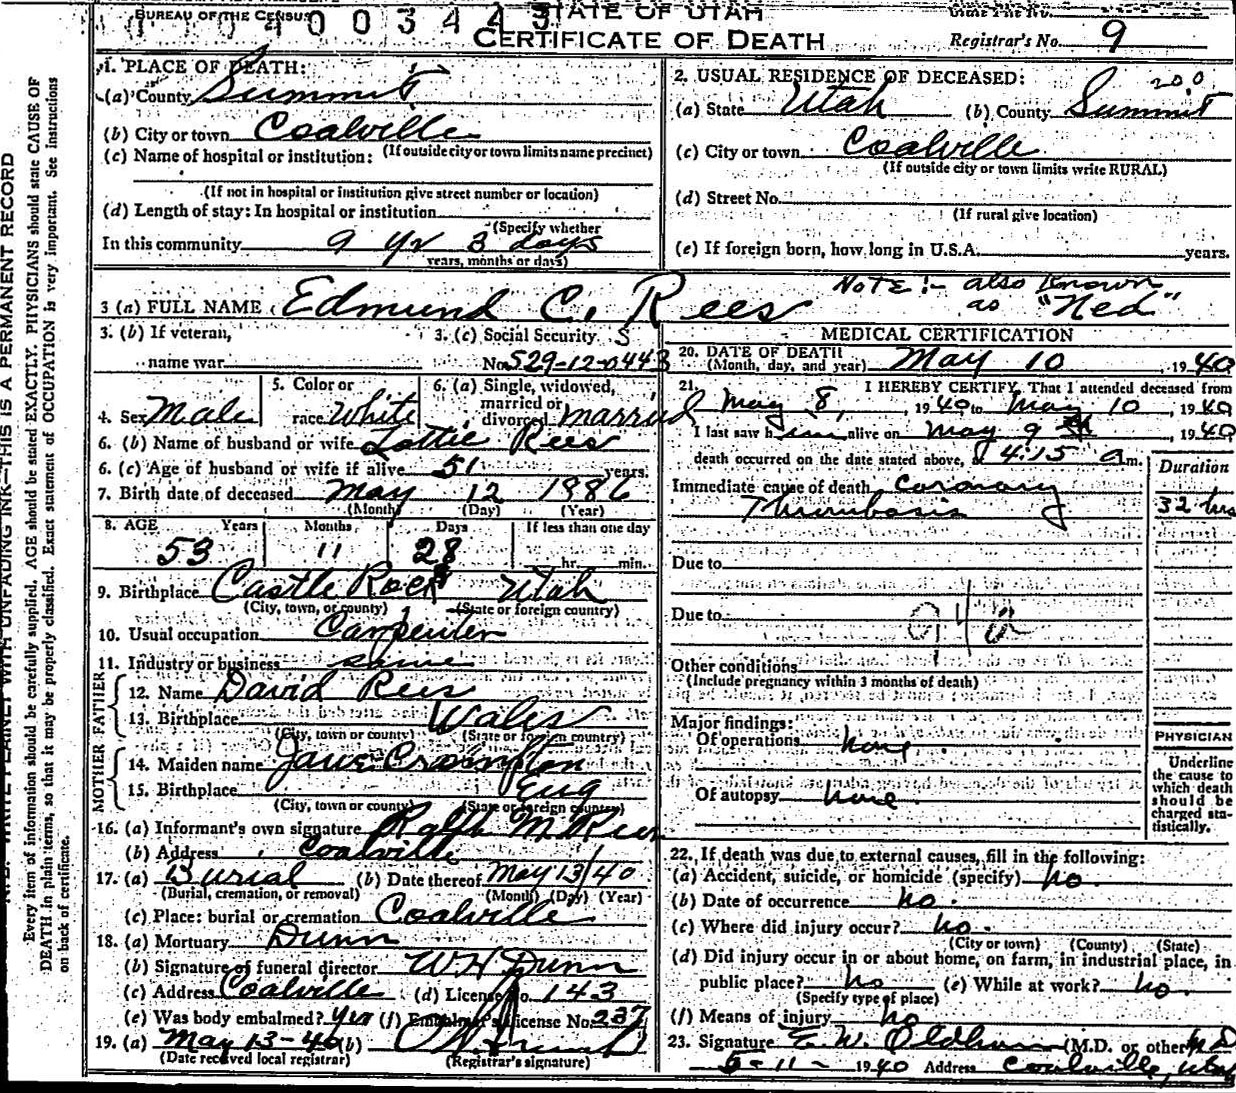 BUREAU OF THE CENSUS
003443
STATE OF UTAH
CERTIFICATE OF DEATH
Registrar's No. 9
WRITE PLAINLY WITH UNFADING INK—THIS IS A PERMANENT RECORD
Every item of information should be carefully supplied. AGE should be stated EXACTLY. PHYSICIANS should state CAUSE OF
DEATH in plain terms, so that it may be properly classified. Exact statement of OCCUPATION is very important. See instructions
on back of certificate.
1. PLACE OF DEATH:
(a) County Summit
(b) City or town Coalville
(If outside city or town limits name precinct)
(c) Name of hospital or institution:
(If not in hospital or institution give street number or location)
(d) Length of stay: In hospital or institution
(Specify whether
In this community 9 yr 3 days
years, months or days)
2. USUAL RESIDENCE OF DECEASED:
200
(a) State Utah (b) County Summit
(c) City or town Coalville
(If outside city or town limits write RURAL)
(d) Street No.
(If rural give location)
(e) If foreign born, how long in U.S.A. years.
3 (a) FULL NAME Edmund C. Rees
NOTE:- also known
as "Ned"
3. (b) If veteran,
name war
3. (c) Social Security S
No. 529-12-0443
4. Sex Male
5. Color or
race White
6. (a) Single, widowed,
married or
divorced married
6. (b) Name of husband or wife Lottie Rees
6. (c) Age of husband or wife if alive 51 years.
7. Birth date of deceased May 12 1886
(Month) (Day) (Year)
8. AGE Years Months Days If less than one day
53 11 28 hr. min.
9. Birthplace Castle Rock Utah
(City, town, or county) (State or foreign country)
10. Usual occupation Carpenter
11. Industry or business same
FATHER
12. Name David Rees
13. Birthplace Wales
(City, town or county) (State or foreign country)
MOTHER
14. Maiden name Jane Crompton
15. Birthplace Eng
(City, town or county) (State or foreign country)
16. (a) Informant's own signature Ralph M. Rees
(b) Address Coalville
17. (a) Burial (b) Date thereof May 13/40
(Burial, cremation, or removal) (Month) (Day) (Year)
(c) Place: burial or cremation Coalville
18. (a) Mortuary Dunn
(b) Signature of funeral director W H Dunn
(c) Address Coalville (d) License No. 143
(e) Was body embalmed? Yes (f) Embalmer's License No. 237
19. (a) May 13-40 (b)
(Date received local registrar) (Registrar's signature)
MEDICAL CERTIFICATION
20. DATE OF DEATH
(Month, day, and year) May 10, 1940
21. I HEREBY CERTIFY, That I attended deceased from
May 8, 1940 to May 10, 1940
I last saw h im alive on May 9th, 1940
death occurred on the date stated above, at 4:15 a m.
Duration
Immediate cause of death coronary
Thrombosis 32 hrs
Due to
Due to
94a
Other conditions
(Include pregnancy within 3 months of death)
Major findings:
Of operations none
Of autopsy none
PHYSICIAN
Underline
the cause to
which death
should be
charged sta-
tistically.
22. If death was due to external causes, fill in the following:
(a) Accident, suicide, or homicide (specify) no
(b) Date of occurrence no.
(c) Where did injury occur? no.
(City or town) (County) (State)
(d) Did injury occur in or about home, on farm, in industrial place, in
public place? no (e) While at work? no.
(Specify type of place)
(f) Means of injury no
23. Signature E. W. Oldham (M.D. or other) M D
5-11-1940 Address Coalville, Utah